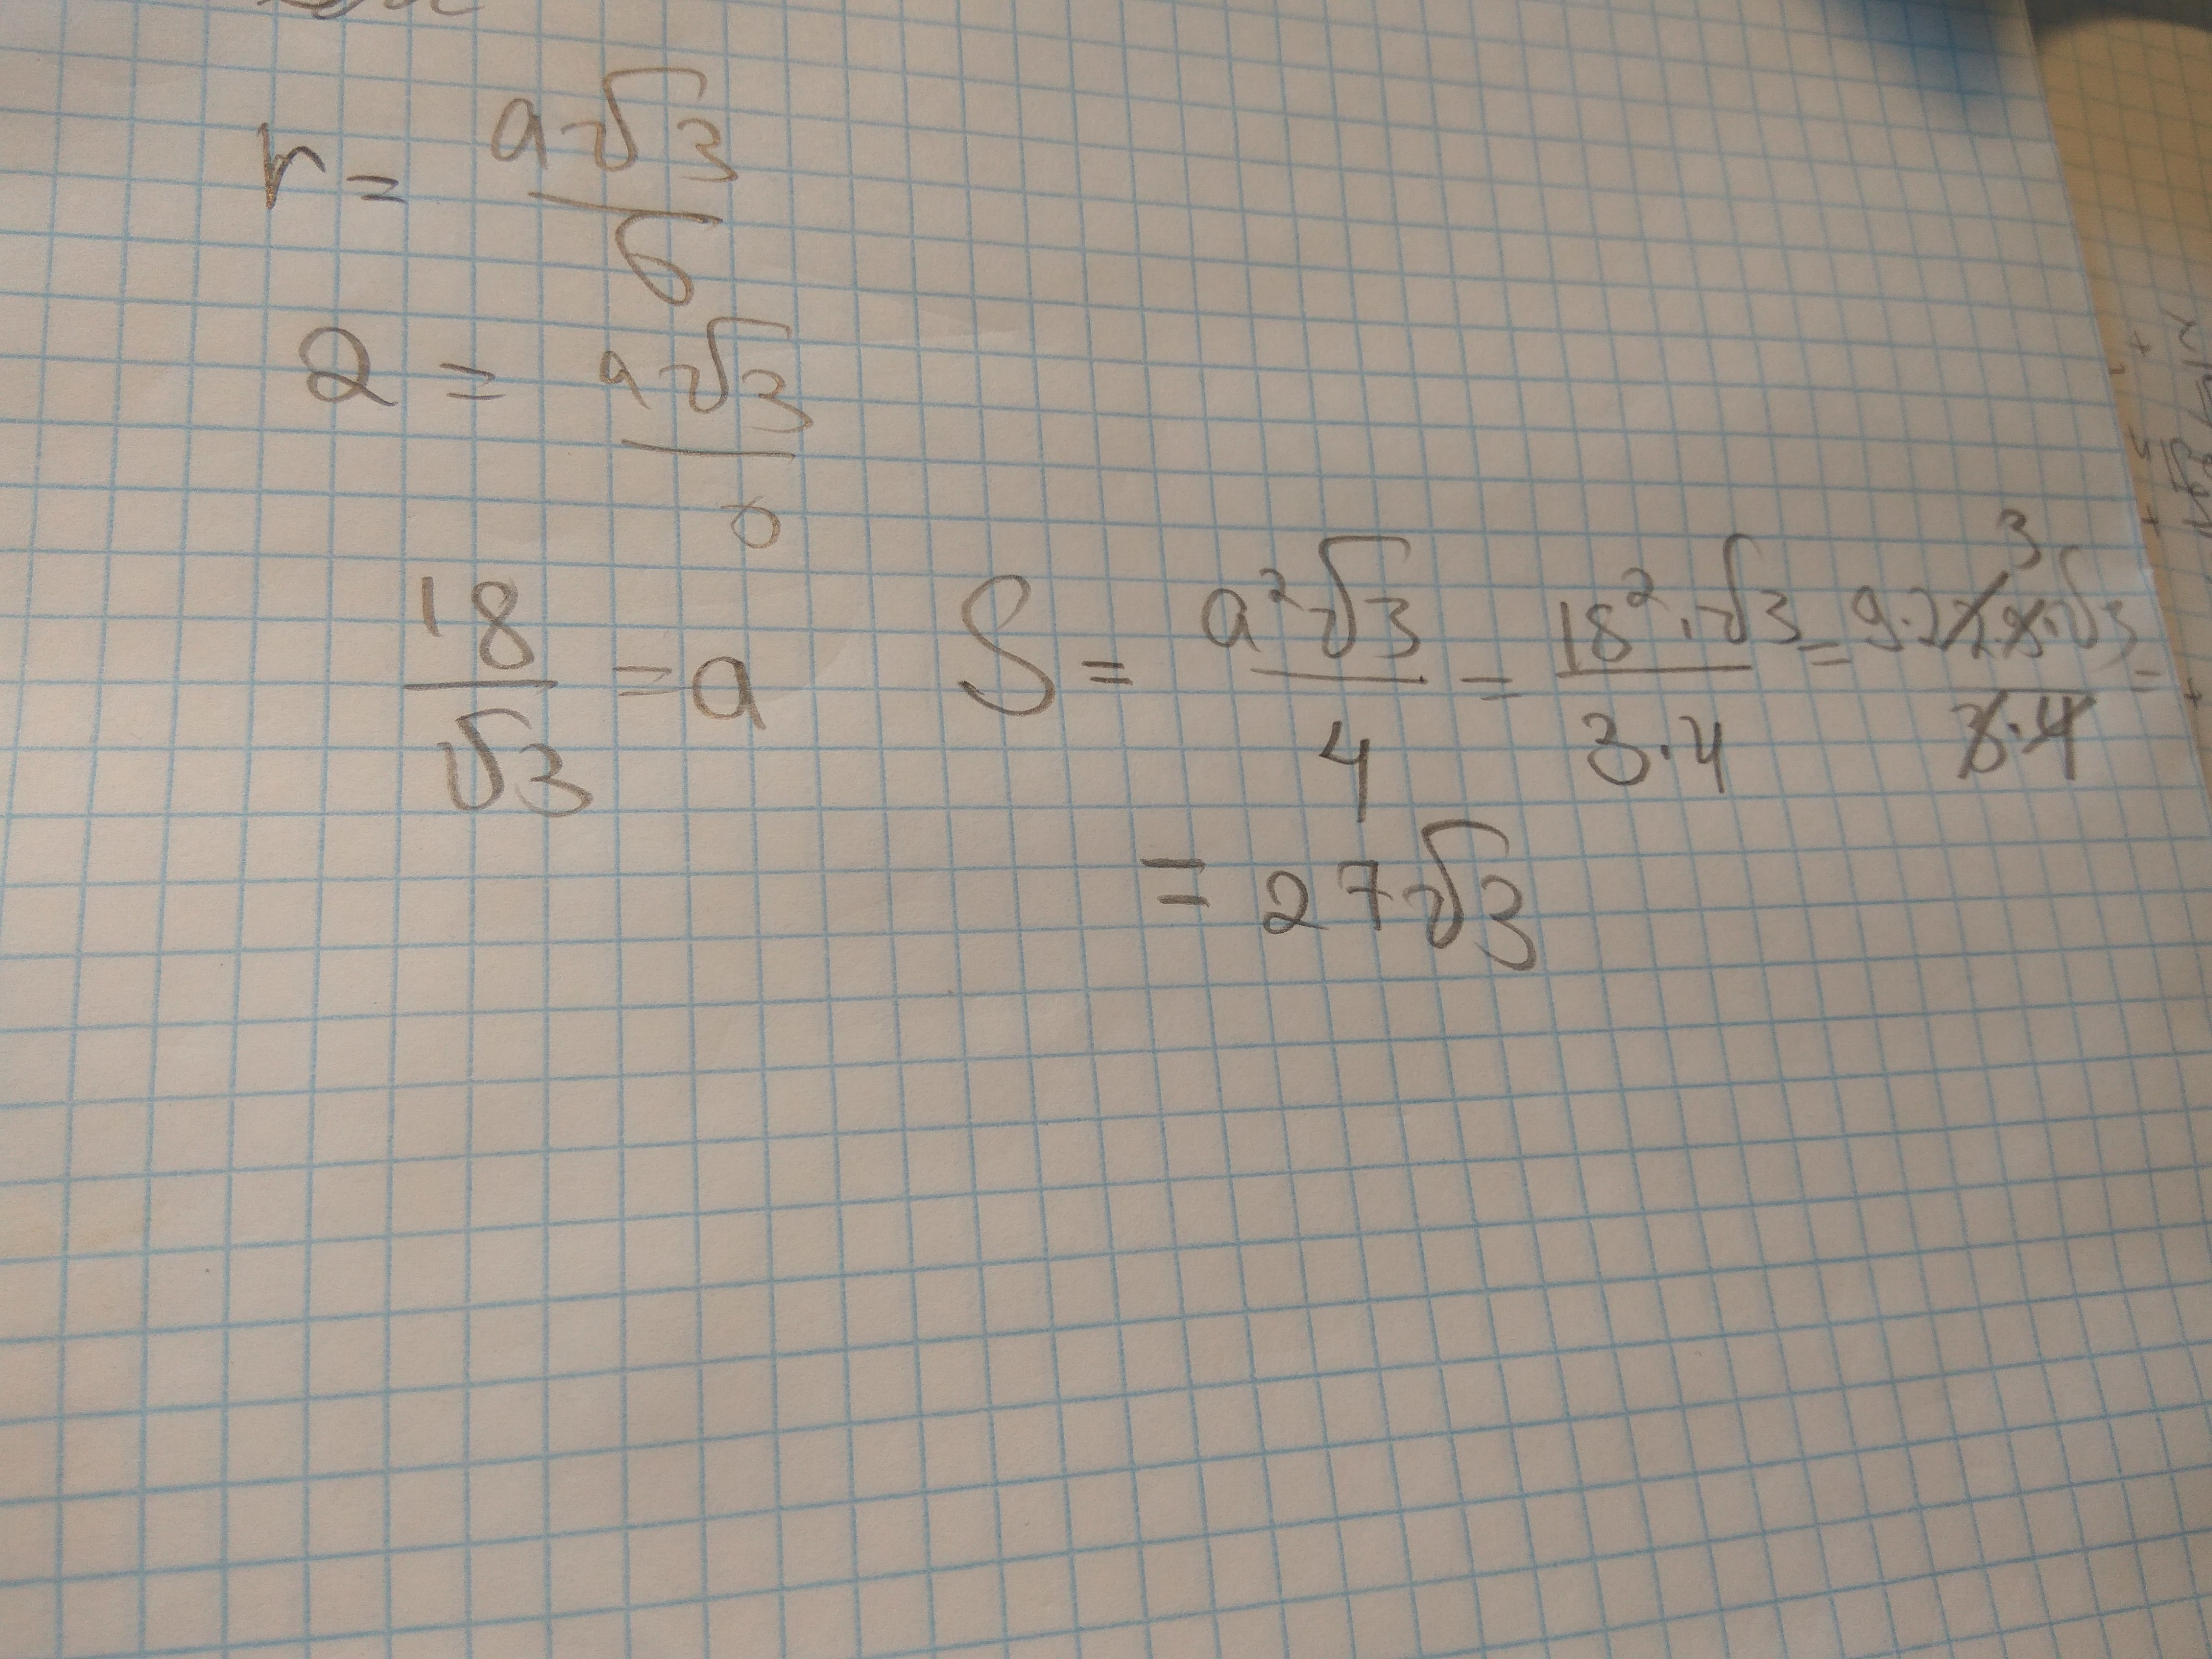 r = a√3/6
2 = a√3/6
18/√3 = a
S = a²√3/4 = 18²·√3/3·4 = 9·2·2·9·√3/3·4 =
3
= 27√3